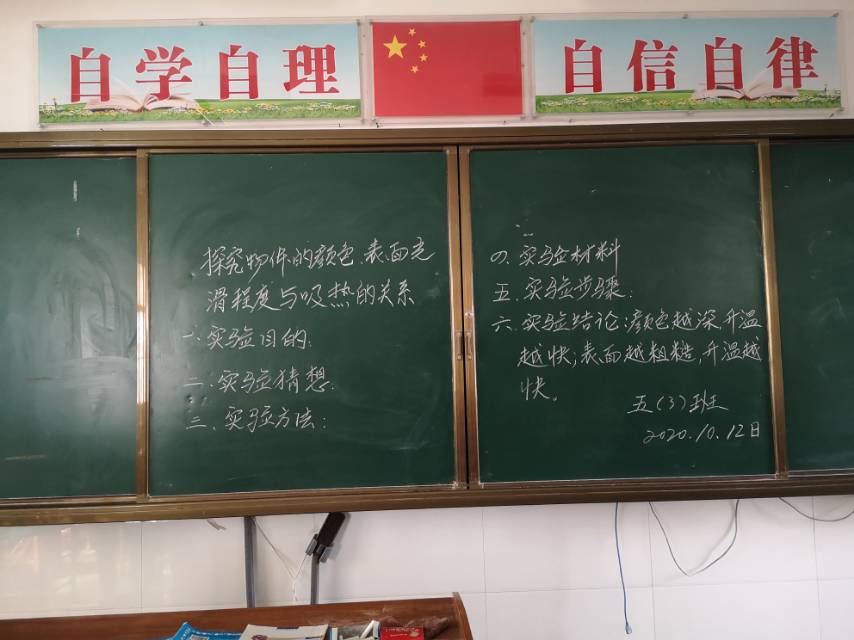 自学自理
自信自律
探究物体的颜色、表面光
滑程度与吸热的关系
一、实验目的:
二、实验猜想:
三、实验方法:
四、实验材料
五、实验步骤:
六、实验结论:颜色越深,升温
越快;表面越粗糙,升温越
快。
五(3)班
2020.10.12日